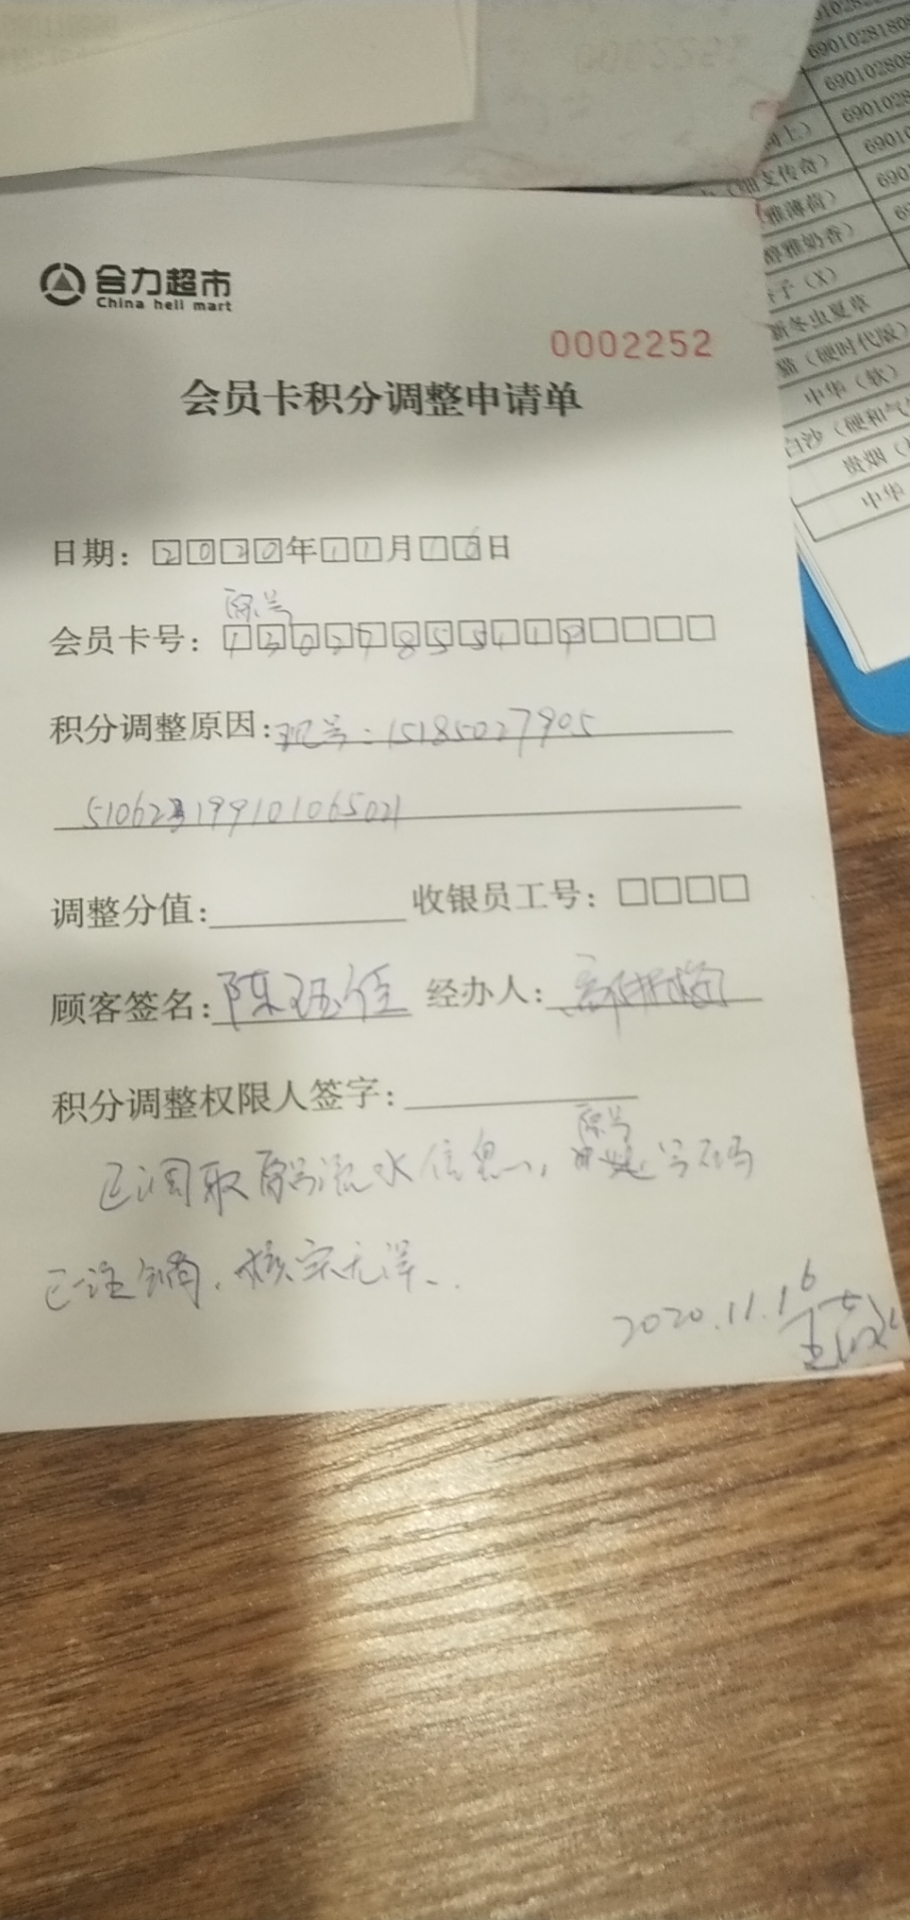 合力超市
China heli mart
0002252
会员卡积分调整申请单
日期：2020年11月16日
原号
会员卡号：
积分调整原因：现号：15185027905
510623199101065021
调整分值：
收银员工号：
顾客签名：陈珏任
经办人：
积分调整权限人签字：
原号
已调取原号流水信息，号码
已注销，核实无误、.
2020.11.16
6901028
690102808
6901028
（细支传奇）
雅薄荷）
橙雅奶香）
子（X）
新冬虫夏草
猫（硬时代版）
中华（软）
白沙（硬和气
贵烟（
中华